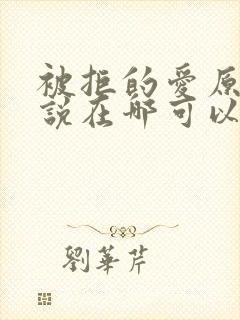 被拒的愛原
說在哪可以
劉華芹